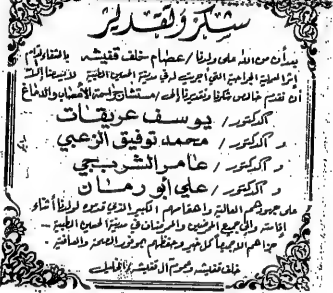 شكر وتقدير
بعد أن منّ الله على ولدنا / عصام خلف قفيشه بالشفاء التام
إثر العملية الجراحية التي أجريت له في مدينة الحسين الطبية لا يسعنا إلا
أن نتقدم بخالص شكرنا وتقديرنا إلى / مستشار جراحة الأعصاب والدماغ
الدكتور / يوسف عريقات
و الدكتور / محمد توفيق الزعبي
و الدكتور / عامر الشربجي
و الدكتور / علي أبو رمان
على جهودهم العالية واهتمامهم الكبير الذي قدموه لولدنا أثناء
إقامته وإلى جميع الممرضين والممرضات في مدينة الحسين الطبية ..
جزاهم الله جميعاً كل خير وحفظهم بموفور الصحة والعافية .
خلف قفيشه وعموم آل قفيشه بالخليل